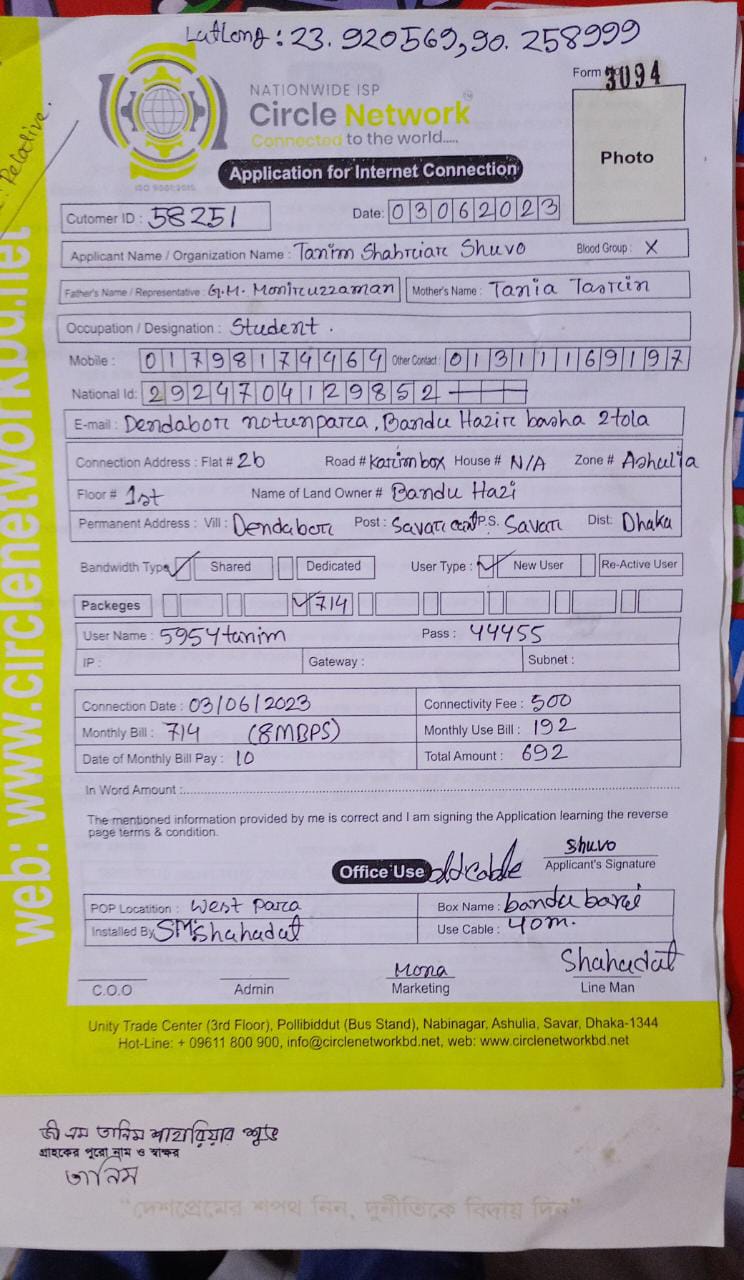 LatLong : 23. 920569,90. 258999
Relative.
NATIONWIDE ISP
Circle Network
Connected to the world.....
ISO 9001:2015
Form 3094
Photo
Application for Internet Connection
Cutomer ID : 58251
Date: 03062023
Applicant Name / Organization Name : Tanim Shahriar Shuvo Blood Group : X
Father's Name / Representative : G.M. Moniruzzaman Mother's Name : Tania Tasrin
Occupation / Designation : Student .
Mobile : 01798174464 Other Contact : 01311169197
National Id: 2924704129852
E-mail : Dendabor notunpara, Bandu Hazir basha 2tola
Connection Address : Flat # 2b Road # Karimbox House # N/A Zone # Ashulia
Floor # 1st Name of Land Owner # Bandu Hazi
Permanent Address : Vill : Dendabor Post : Savar cant P.S. Savar Dist: Dhaka
Bandwidth Type ✓ Shared Dedicated User Type : ✓ New User Re-Active User
Packeges ✓ 714
User Name : 5954tanim Pass : 44455
IP : Gateway : Subnet :
Connection Date : 03/06/2023 Connectivity Fee : 500
Monthly Bill : 714 (8MBPS) Monthly Use Bill : 192
Date of Monthly Bill Pay : 10 Total Amount : 692
In Word Amount :
The mentioned information provided by me is correct and I am signing the Application learning the reverse
page terms & condition.
Shuvo
Applicant's Signature
Office Use old cable
POP Locatition : West para Box Name : bandu bari
Installed By SM Shahadat Use Cable : 40m.
Mona Shahadat
C.O.O Admin Marketing Line Man
Unity Trade Center (3rd Floor), Pollibiddut (Bus Stand), Nabinagar, Ashulia, Savar, Dhaka-1344
Hot-Line: + 09611 800 900, info@circlenetworkbd.net, web: www.circlenetworkbd.net
web: www.circlenetworkbd.net
জী এম তানিম শাহারিয়ার শুভ
গ্রাহকের পুরো নাম ও স্বাক্ষর
তানিম
“দেশপ্রেমের শপথ নিন, দুর্নীতিকে বিদায় দিন”